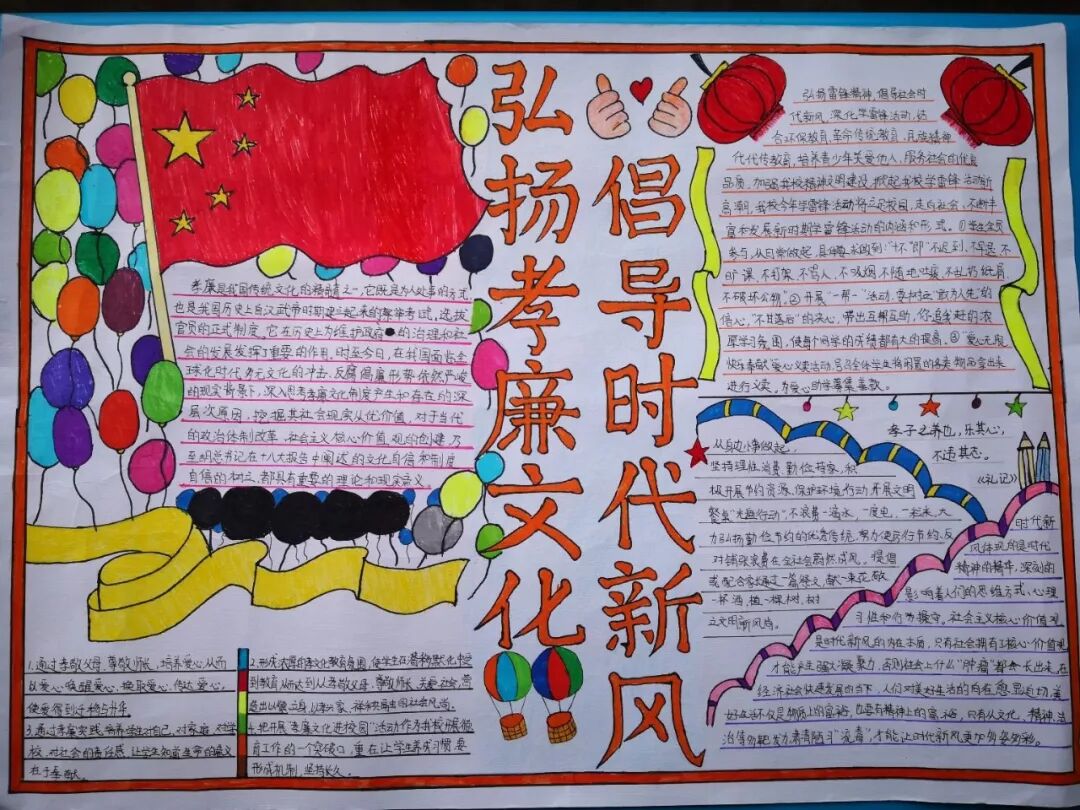 弘扬孝廉文化
倡导时代新风
孝廉是我国传统文化的精髓之一,它既是为人处事的方式,
也是我国历史上自汉武帝时期建立起来的察举考试,选拔
官员的正式制度。它在历史上为维护政府的治理和社
会的发展发挥了重要的作用。时至今日,在我国面临全
球化时代多元文化的冲击、反腐倡廉形势依然严峻
的现实背景下,深入思考孝廉文化制度产生和存在的深
层次原因,挖掘其社会现实从优价值,对于当代
的政治体制改革,社会主义核心价值观的创建,乃
至胡总书记在十八大报告中阐述的文化自信和制度
自信的树立,都具有重要的理论和现实意义。
1.通过孝敬父母、尊敬师长,培养爱心,从而
以爱心唤醒爱心,换取爱心,传达爱心,
使爱得到迁移与升华
3.通过孝廉实践,培养学生对自己,对家庭,对学
校,对社会的责任感,让学生知道生命的意义
在于奉献。
2.形成浓厚的孝文化教育氛围,使学生在潜移默化中受
到教育从而达到从孝敬父母,尊敬师长,关爱社会,营
造出以像立身,以孝兴家,祥和共富中的社会风尚。
4.把开展“孝廉文化进校园”活动作为我校展德
育工作的一个突破口,重在让学生养成习惯,要
形成机制,坚持长久。
弘扬雷锋精神,倡导社会时
代新风,深化学雷锋活动,结
合环保教育,革命传统教育,民族精神
代代传教育,培养青少年关爱他人,服务社会的优良
品质,加强我校精神文明建设,掀起我校学雷锋活动新
高潮,我校今年学雷锋活动将立足校园,走向社会,不断丰
富和发展新时期学雷锋活动的内涵和形式。①学生全员
参与,从日常做起,具体要求做到:“十不”即“不迟到、不早退、不
旷课、不打架、不骂人、不吸烟、不随地吐痰、不乱扔纸屑、
不破坏公物。②开展“一帮一”活动,要树立“敢为人先”的
信心,“不甘落后”的决心,带出互帮互助,你追我赶的浓
厚学习氛围,使每个同学的成绩都有大的提高。③“爱心无限
快乐奉献”爱心义卖活动,号召全体学生将闲置的各类物品拿出来
进行义卖。为爱心助学筹集善款。
从自身小事做起,
坚持理性消费,勤俭持家,积
极开展节约资源、保护环境行动,开展文明
餐桌“光盘行动”,不浪费一滴水,一度电,一粒米,大
力弘扬勤俭节约的优秀传统,努力使厉行节约、反
对铺张浪费在全社会蔚然成风。提倡
或配合家长通过一篇祭文,献一束花,敬
一杯酒,植一棵树,树
立文明新风尚。
孝子之养也,乐其心,
不违其志。
《礼记》
时代新
风体现的是时代
精神的精华,深刻的
影响着人们的思维方式,心理
习性和行为操守。社会主义核心价值观
是时代新风的内在本质,只有社会拥有了核心价值观
才能产生强大凝聚力,否则社会上什么“肿瘤”都会长出来,在
经济社会快速发展的当下,人们对美好生活的向往愈显迫切,美
好生活不仅是物质上的富裕,也要有精神上的富裕,只有从文化,精神,法
治等方靶发力,肃清陋习“流毒”,才能让时代新风更加多姿多彩。